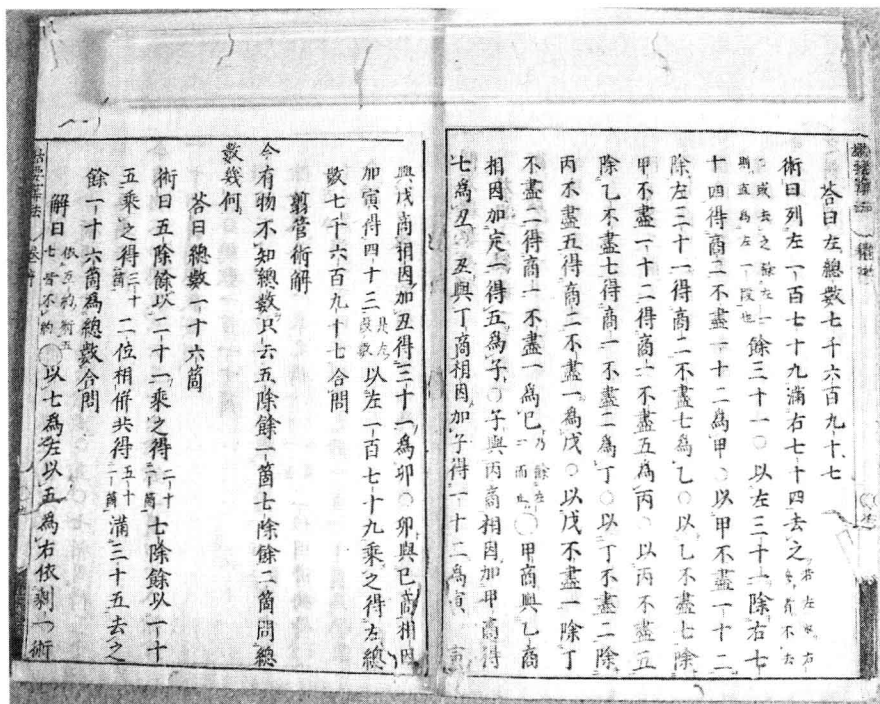 答曰左總數七千六百九十七
術曰列左一百七十九滿右七十四去之
或去之餘左一則直爲左一段也餘三十一〇以左三十一除右七
十四得商二不盡一十二爲甲〇以甲不盡一十二
除左三十一得商二不盡七爲乙〇以乙不盡七除
甲不盡一十二得商一不盡五爲丙〇以丙不盡五
除乙不盡七得商一不盡二爲丁〇以丁不盡二除
丙不盡五得商二不盡一爲戊〇以戊不盡一除丁
不盡二得商一不盡一爲己乃餘左一而止〇甲商與乙商
相因加定一得五爲子〇子與丙商相因加甲商得
七爲丑〇丑與丁商相因加子得一十二爲寅〇寅
與戊商相因加丑得三十一爲卯〇卯與己商相因
加寅得四十三是左段數以左一百七十九乘之得左總
數七千六百九十七合問
翦管術解
今有物不知總數只云五除餘一箇七除餘二箇問總
數幾何
答曰總數一十六箇
術曰五除餘以二十一乘之得二十一箇七除餘以一十
五乘之得三十箇二位相併共得五十一箇滿三十五去之
餘一十六箇爲總數合問
解曰依互約術五七皆不約〇以七爲左以五爲右依剩一術
括要算法